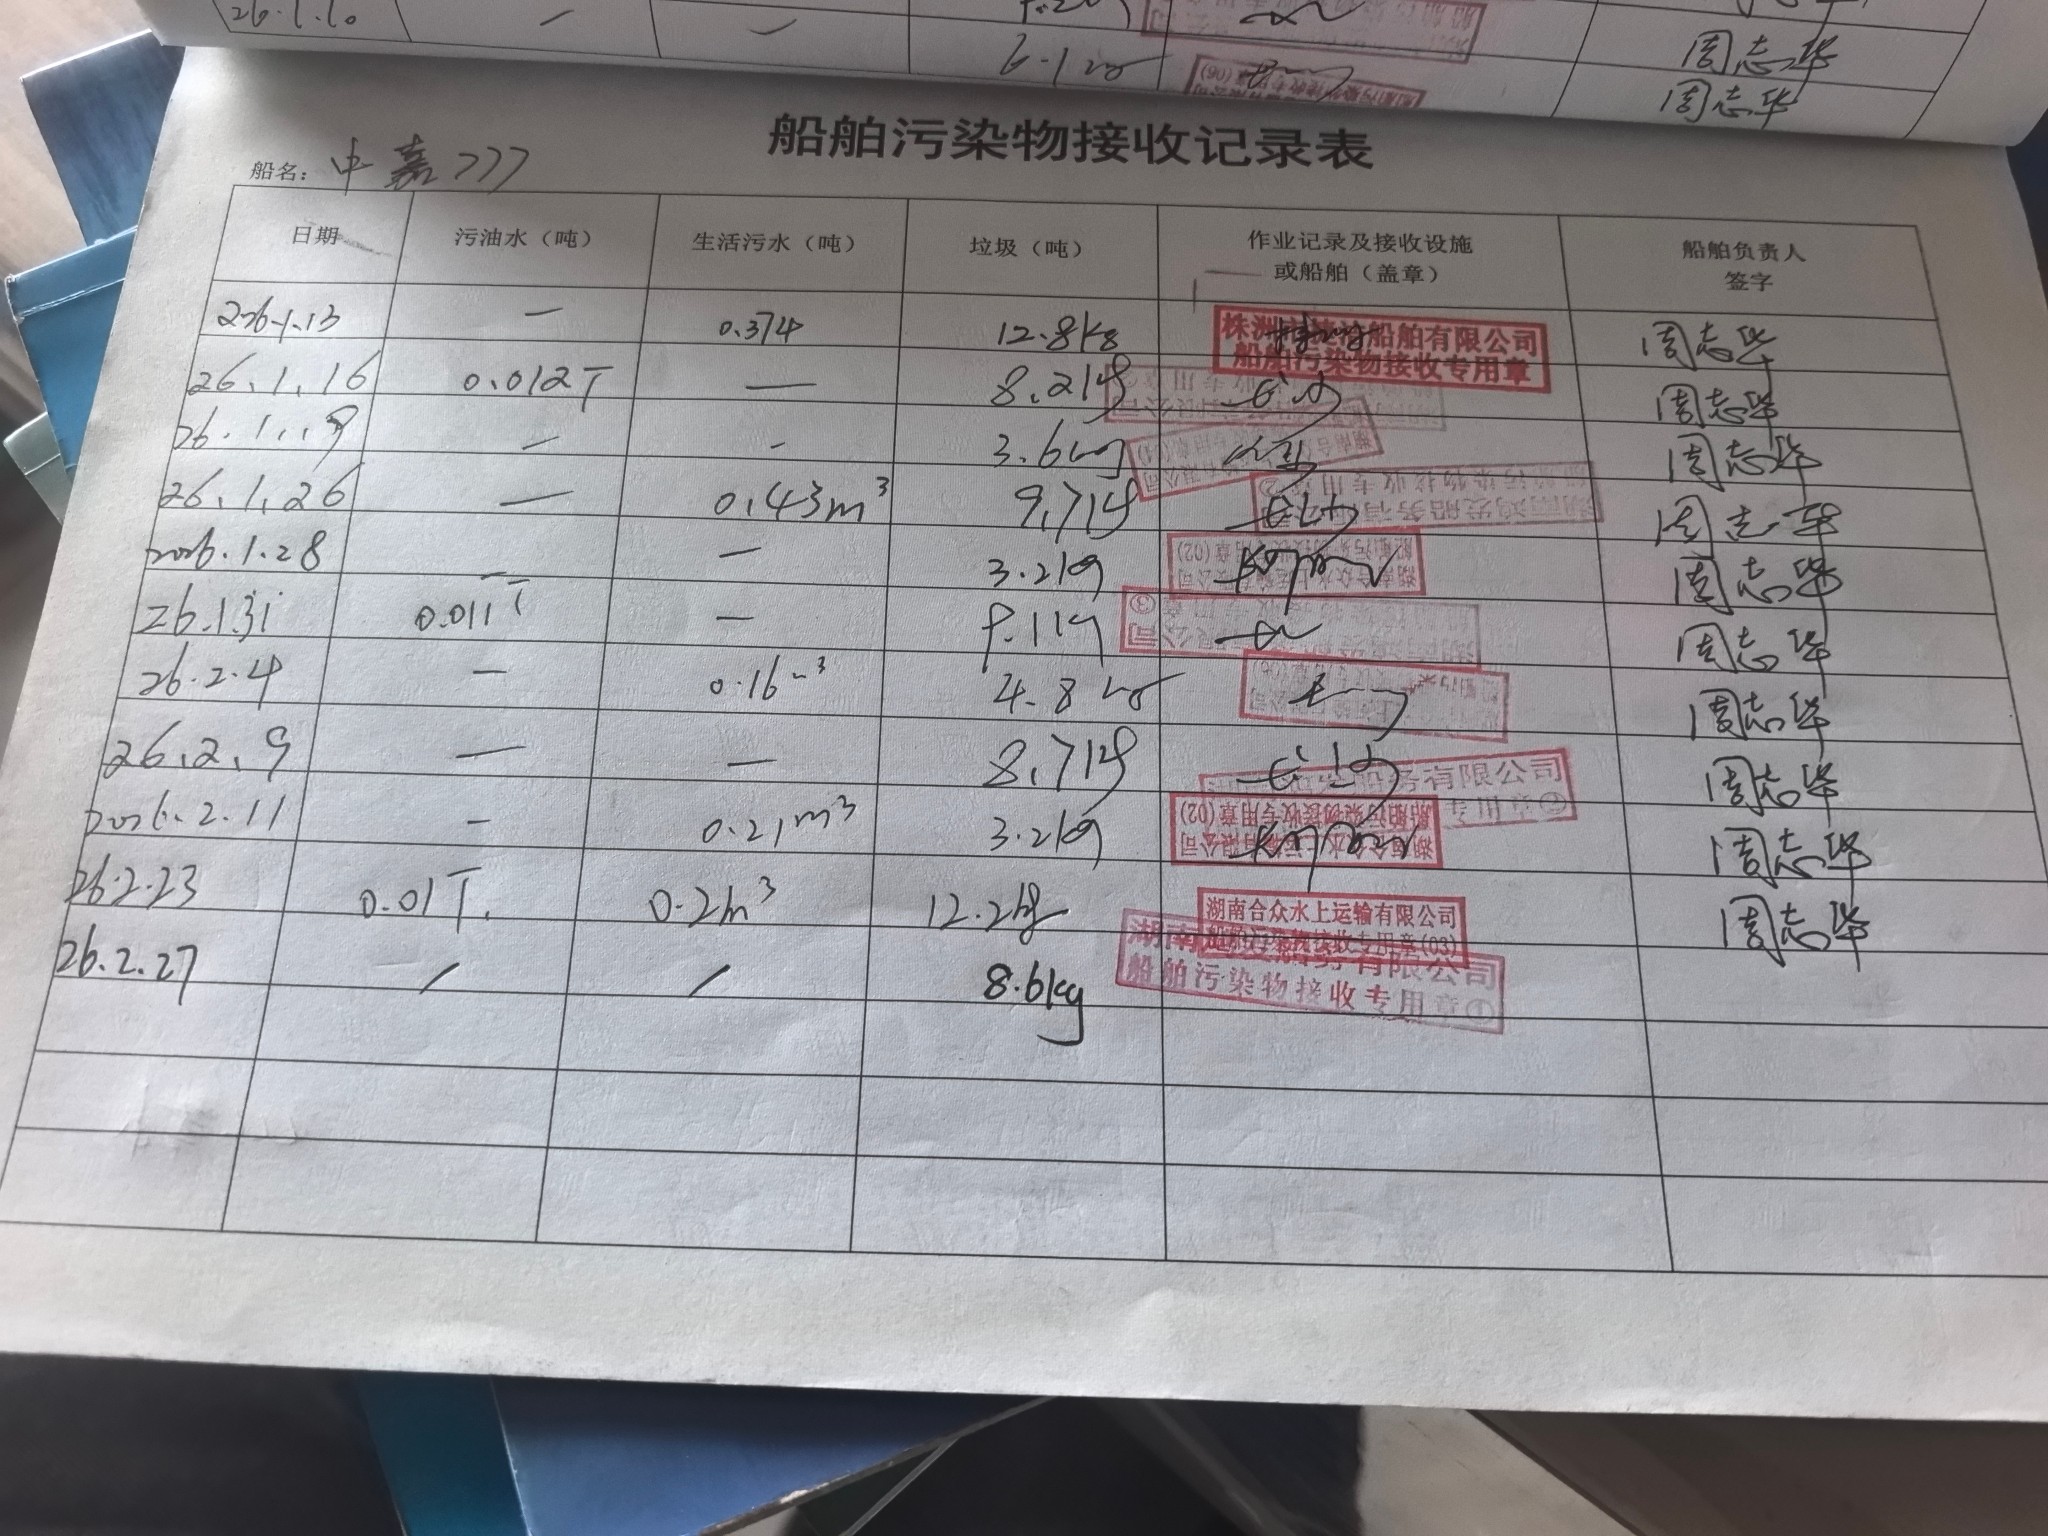 26.1.10 — —
6.1kg 周志华
周志华
船舶污染物接收记录表
船名: 中嘉777
日期 污油水（吨） 生活污水（吨） 垃圾（吨） 作业记录及接收设施或船舶（盖章） 船舶负责人签字
2026.1.13 — 0.374 12.8kg 船舶有限公司 船舶污染物接收专用章 周志华
26.1.16 0.012T — 8.2kg 周志华
26.1.19 — - 3.6kg 周志华
26.1.26 — 0.43m³ 9.7kg 周志华
2026.1.28 — — 3.2kg 周志华
26.1.31 0.011T — 周志华
26.2.4 — 0.16m³ 4.8kg 周志华
26.2.9 — — 8.7kg 船务有限公司 专用章 周志华
2026.2.11 - 0.21m³ 3.2kg 周志华
26.2.23 0.01T. 0.2m³ 12.2kg 湖南合众水上运输有限公司 船舶污染物接收专用章(03) 周志华
26.2.27 / / 8.6kg 湖南 船务有限公司 船舶污染物接收专用章①